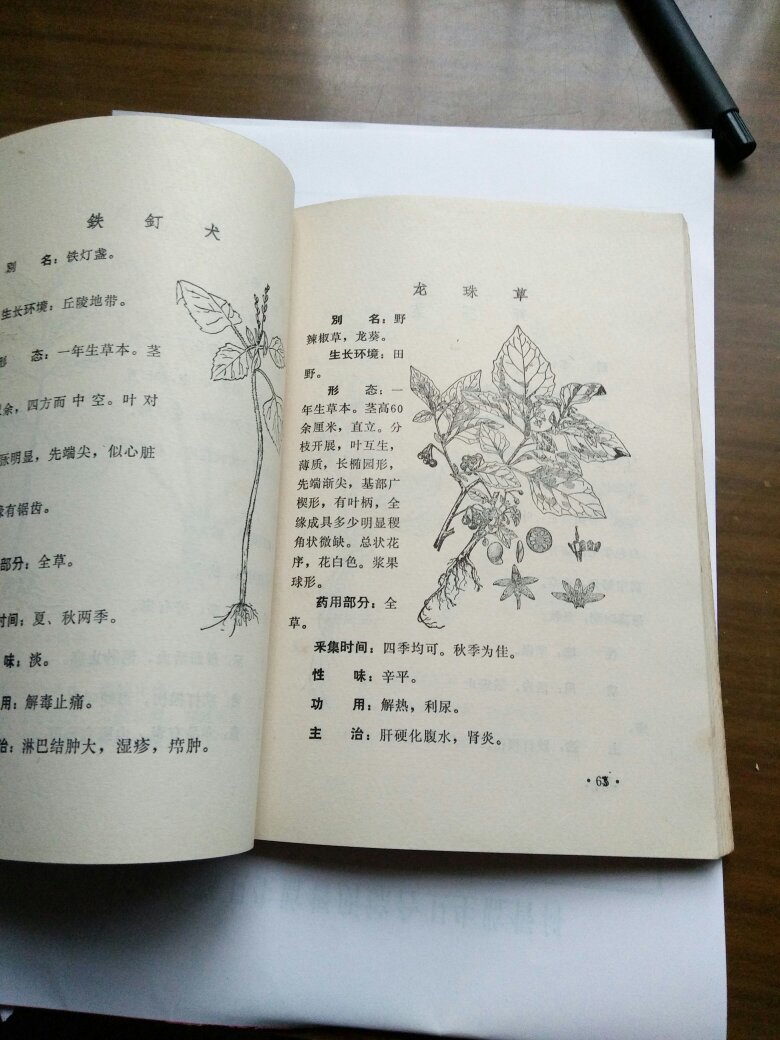 鉄釘犬
别名：铁灯盏。
生长环境：丘陵地带。
形态：一年生草本。茎
余，四方而中空。叶对
脉明显，先端尖，似心脏
缘有锯齿。
部分：全草。
时间：夏、秋两季。
味：淡。
用：解毒止痛。
治：淋巴结肿大，湿疹，疖肿。
龙珠草
别名：野
辣椒草，龙葵。
生长环境：田
野。
形态：一
年生草本。茎高60
余厘米，直立。分
枝开展，叶互生，
薄质，长椭园形，
先端渐尖，基部广
楔形，有叶柄，全
缘成具多少明显稷
角状微缺。总状花
序，花白色。浆果
球形。
药用部分：全
草。
采集时间：四季均可。秋季为佳。
性味：辛平。
功用：解热，利尿。
主治：肝硬化腹水，肾炎。